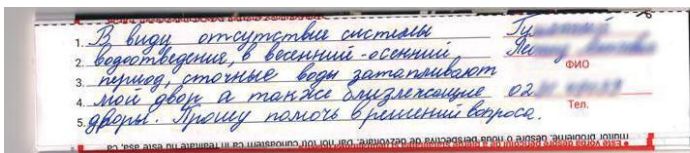 1. В виду отсутствие системы
2. водоотведения, в весенний-осенний
ФИО
3. период, сточные воды затапливают
4. мой двор а также близлежащие 02
Тел.
5. дворы. Прошу помочь в решений вопроса.